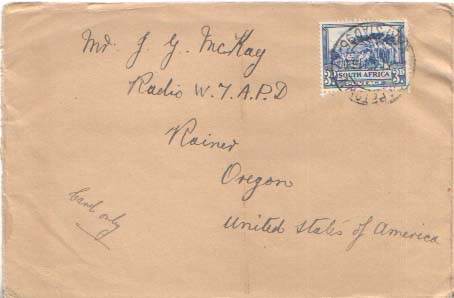 Mr. J. G. McKay
Radio W.7.A.P.D
Rainer
Oregon
United States of America
Card only
3D SOUTH AFRICA 3D
POSTAGE